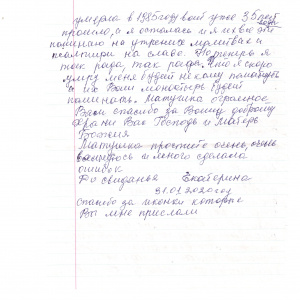 умерла в 1985 году вот уже 35 лет
прошло, а я осталась и я их
поминаю на утрених молитвах и
псалтири на славе. Но теперь я
так рада, так рада, что я скоро
умру меня будет некому поминать
а их Ваш монастырь будет
поминать. Матушка огромное
Вам спасибо за Вашу доброту
Храни Вас Господь и Матерь
Божия
Матушка простите очень, очень
и много сделала
ошибок
До свидания Екатерина
31.01.2020 году
Спасибо за иконки которые
Вы мне прислали